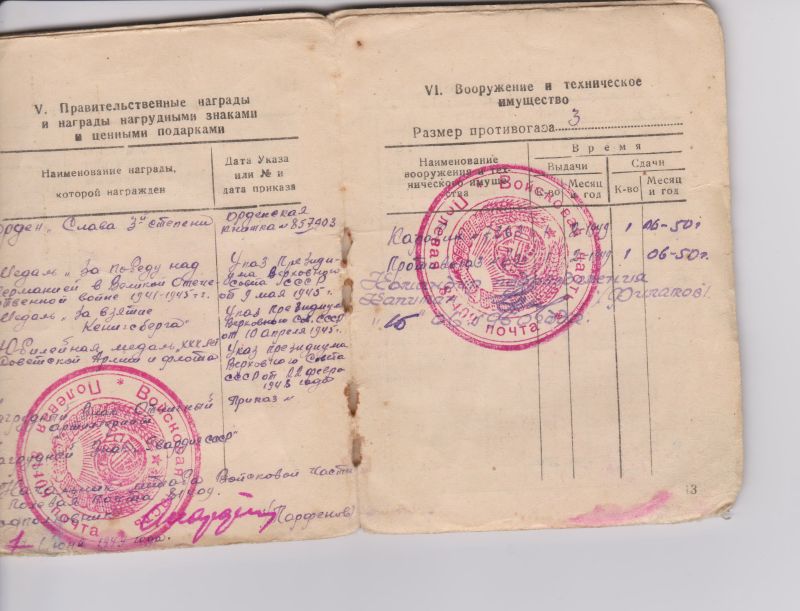 V. Правительственные награды
и награды нагрудными знаками
и ценными подарками
Наименование награды,
которой награжден
Дата Указа
или № и
дата приказа
орден „Слава 3й степени
Орденская
книжка № 857903
Медаль „За победу над
Германией в Великой Отече-
ственной войне 1941-1945 г.г.
Указ Президи-
ума Верховного
Совета СССР
от 9 мая 1945 г.
Медаль „За взятие
Кенигсберга"
Указ президиума
Верховного Сов. СССР
от 10 апреля 1945 г.
Юбилейная медаль XXX лет
Советской Армии и флота
Указ президиума
Верховного Совета
СССР от 22 февра
1948 года
Нагрудной Знак Отличный
артиллерист
Приказ №
Нагрудной Знак „Гвардия СССР"
Начальник штаба Войсковой Части
Полевая Почта
Парфенов
июня 1949 года.
Войсковая часть
Полевая почта
VI. Вооружение и техническое
имущество
Размер противогаза 3
Наименование
вооружения и тех-
нического имуще-
ства
Время
Выдачи
Сдачи
К-во
Месяц
и год
К-во
Месяц
и год
Карабин
1949 1 06-50г.
Противогаз
1949 1 06-50г.
Капитан
Войсковая часть
Полевая почта
13